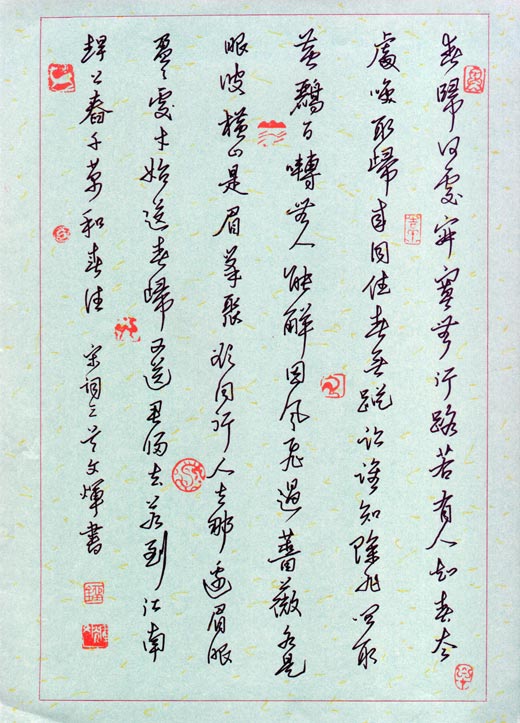 春歸何處寂寞無行路若有人知春去
處喚取歸來同住春無蹤跡誰知除非問取
黃鸝百囀無人能解因風飛過薔薇水是
眼波橫山是眉峯聚欲問行人去那邊眉眼
盈々處才始送春歸又送君歸去若到江南
趕上春千萬和春住 宋詞二首文煇書